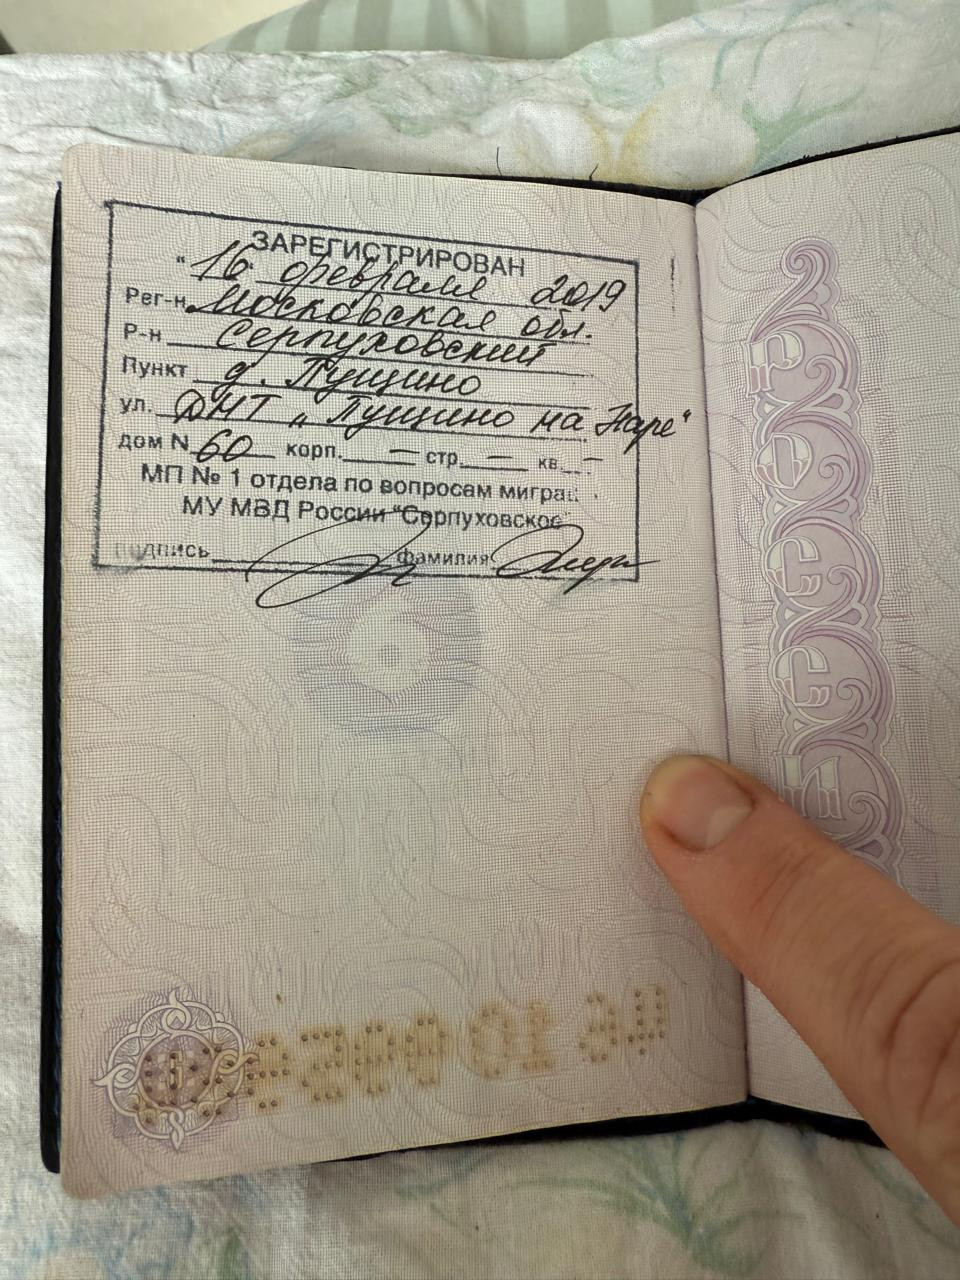 ЗАРЕГИСТРИРОВАН
"16" февраля 2019
Рег-н Московская обл.
Р-н Серпуховский
Пункт д. Пущино
ул. ДНТ "Пущино на Наре"
дом N 60 корп. — стр. — кв. —
МП № 1 отдела по вопросам миграц
МУ МВД России "Серпуховское"
подпись фамилия
РОССИ